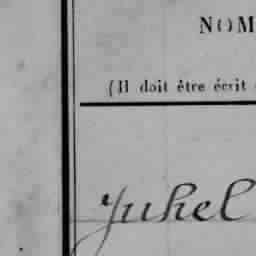 NOM
(Il doit être écrit
Juhel